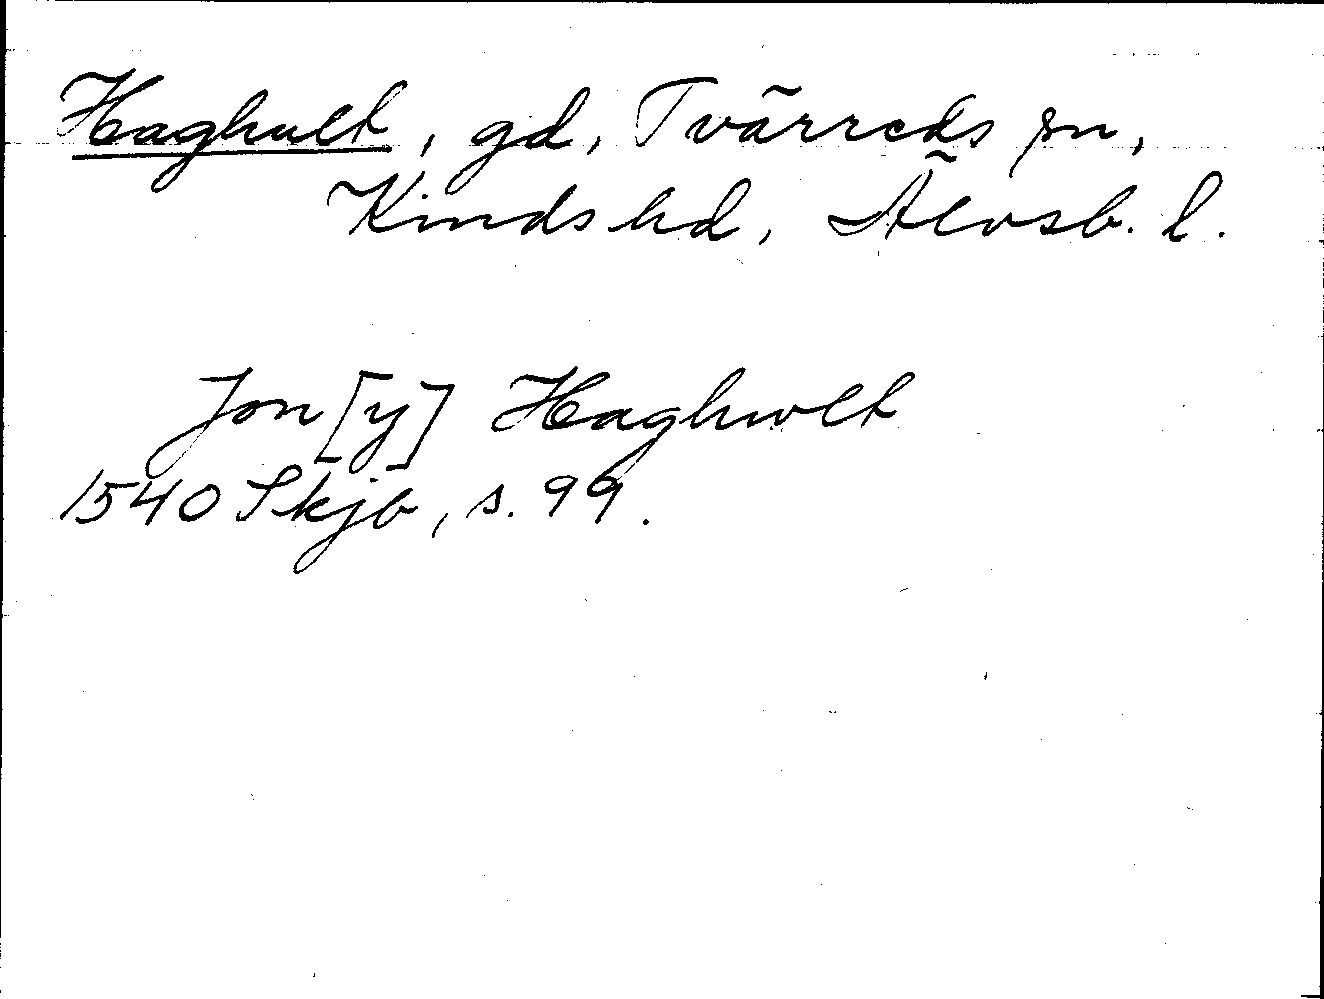 Haghult, gd, Tvärreds sn,
Kinds hd, Älvsb. l.
Jon [y] Haghwlt
1540 Skjb, s. 99.